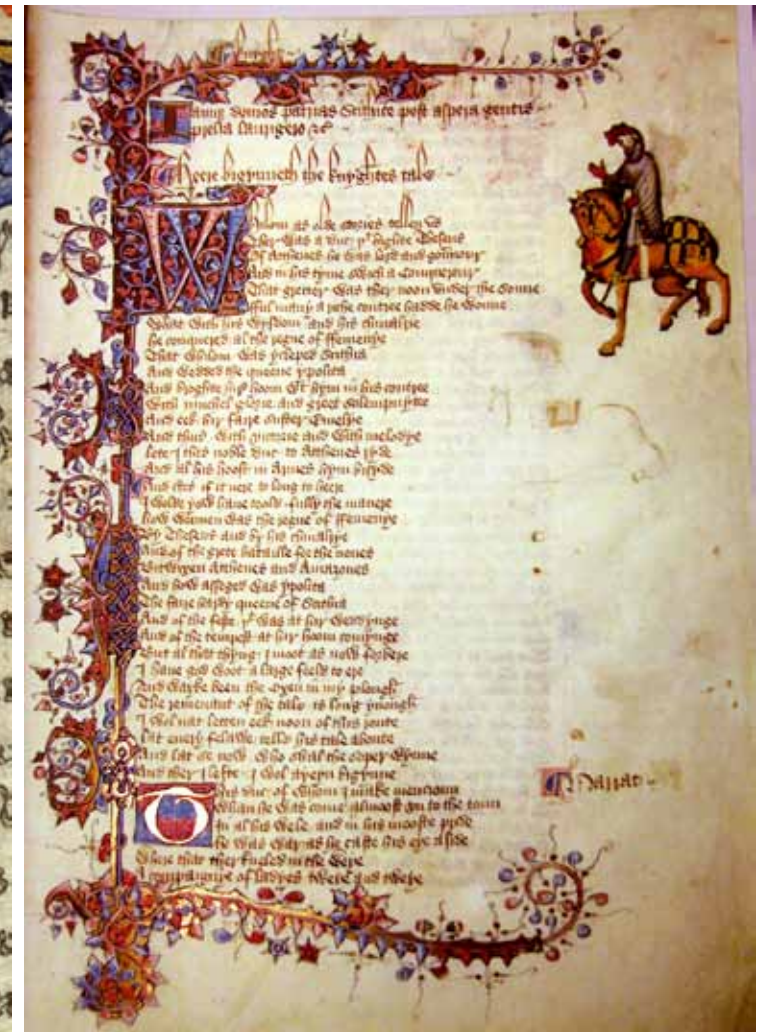 Iamque domos patrias Scithice post aspera gentis
prelia laurigero &c
Heere bigynneth the knyghtes tale
Whilom as olde stories tellen vs
Ther was a duc þt highte Theseus
Of Atthenes he was lord and gouernour
And in his tyme swich a conquerour
That gretter was ther noon vnder the sonne
fful many a riche contree hadde he wonne
What with his wysdom and his chiualrye
he conquered al the regne of ffemenye
That whilom was ycleped Scithia
And wedded the queene ypolita
And broghte hir hoom wt hym in his contree
With muchel glorie and greet solempnytee
And eek hir faire suster Emelye
And thus with victorie and with melodye
lete I this noble duc to Atthenes ryde
And al his hoost in Armes hym bisyde
And certes if it nere to long to heere
I wolde yow haue toold fully the manere
how wonnen was the regne of ffemenye
By Theseus and by his chiualrye
And of the grete bataille for the nones
Bitwixen Atthenes and Amazones
And how asseged was ypolita
The faire hardy queene of Scithia
And of the feste þt was at hir weddynge
And of the tempest at hir hoom comynge
But al that thyng I moot as now forbere
I haue god woot a large feeld to ere
And wayke been the oxen in my plough
The remenant of the tale is long ynough
I wol nat letten eek noon of this route
lat euery felawe telle his tale aboute
And lat se now who shal the soper wynne
And ther I lefte I wol ayeyn bigynne
This duc of whom I make mencioun
Whan he was come almoost vn to the toun
In al his wele and in his mooste pride
he was war as he caste his eye aside
Where that ther kneled in the weye
A compaignye of ladyes tweye and tweye
Narrat